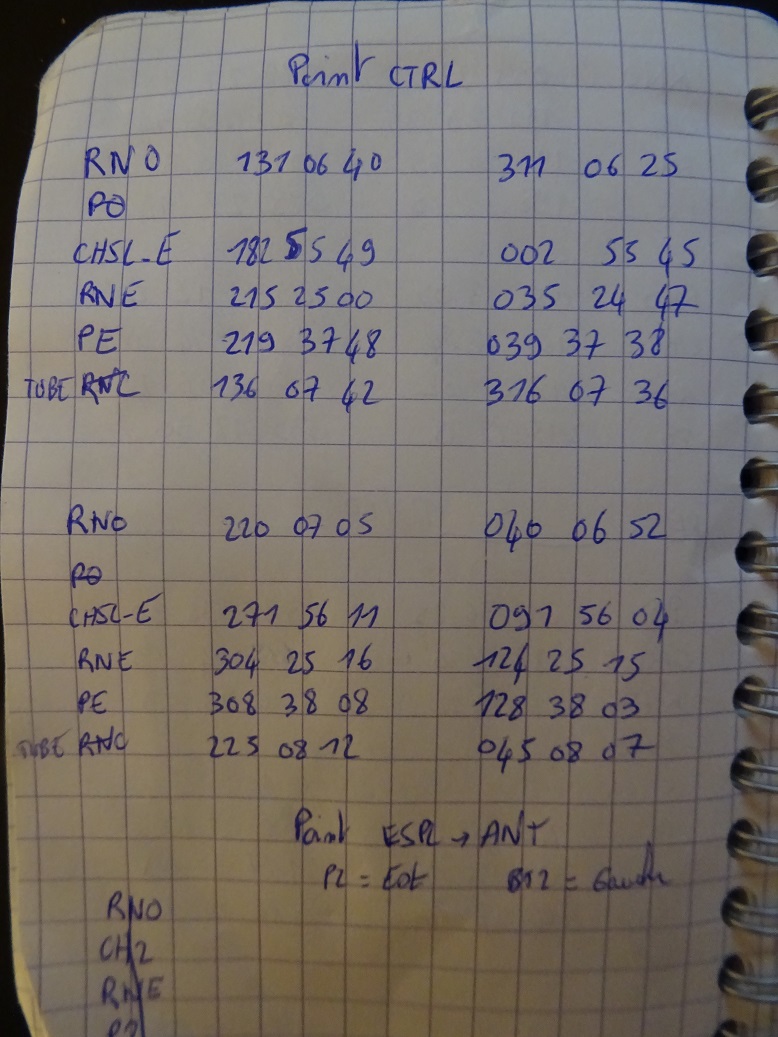 Point CTRL
RNO 131 06 40 311 06 25
PO
CHSL-E 182 55 49 002 55 45
RNE 215 25 00 035 24 47
PE 219 37 48 039 37 38
TUBE RNC 136 07 42 316 07 36
RNO 220 07 05 040 06 52
PO
CHSL-E 271 56 11 091 56 04
RNE 304 25 16 124 25 15
PE 308 38 08 128 38 03
TUBE RNO 225 08 12 045 08 07
Point ESPL → ANT
P2 = Eot
RNO
CH2
RNE
P2